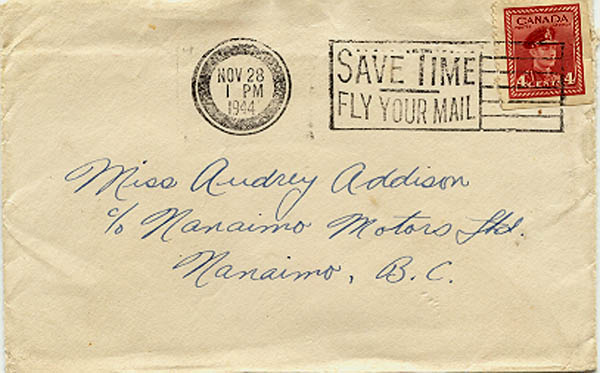 CANADA
4 CENTS 4
NOV 28
1 PM
1944
SAVE TIME
FLY YOUR MAIL
Miss Audrey Addison
c/o Nanaimo Motors Ltd.
Nanaimo, B.C.